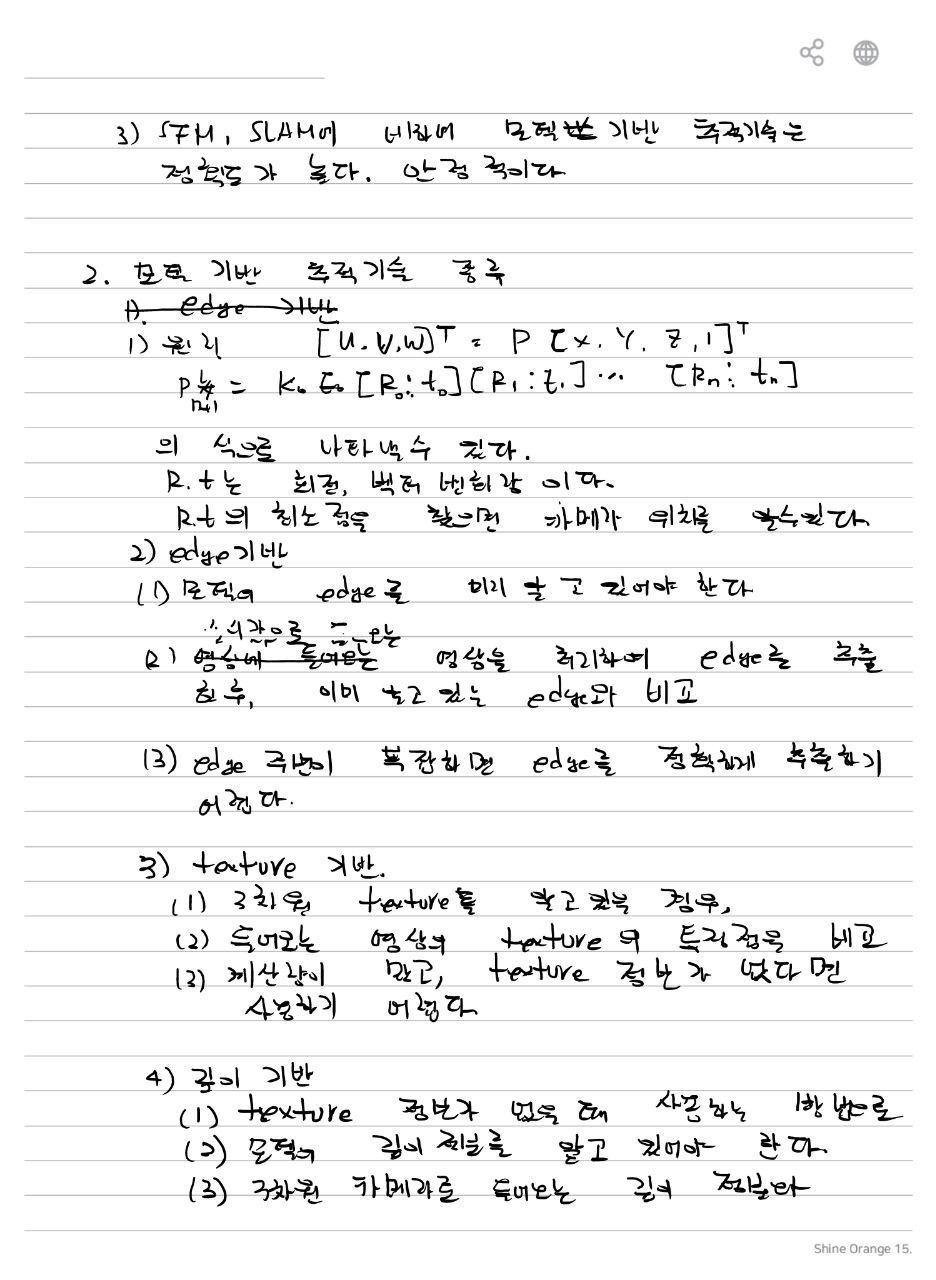 3) SFM, SLAM에 비하여 모델 기반 추적기술은
정확도가 높다. 안정적이다
2. 모델 기반 추적기술 종류
1). edge 기반
1) 원리 [U.V.W]ᵀ = P [X.Y.Z,1]ᵀ
= K₀ E₀ [R₀:t₀][R₁:t₁]... [Rn:tn]
의 식으로 나타낼수 있다.
R.t는 회전, 벡터 변화량 이다.
R.t의 최소점을 찾으면 카메라 위치를 알수있다
2) edge기반
(1) 모델의 edge를 미리 알고 있어야 한다
영상에 들어오는 영상을 처리하여 edge를 추출
한 후, 이미 알고 있는 edge와 비교
(3) edge 주변이 복잡하면 edge를 정확하게 추출하기
어렵다.
3) texture 기반.
(1) 3차원 texture를 알고 있는 경우,
(2) 들어오는 영상의 texture의 특징점을 비교
(3) 계산량이 많고, texture 정보가 없다면
사용하기 어렵다
4) 깊이 기반
(1) texture 정보가 없을 때 사용하는 방법으로
(2) 모델의 깊이 정보를 알고 있어야 한다.
(3) 3차원 카메라로 들어오는 깊이 정보와
Shine Orange 15.